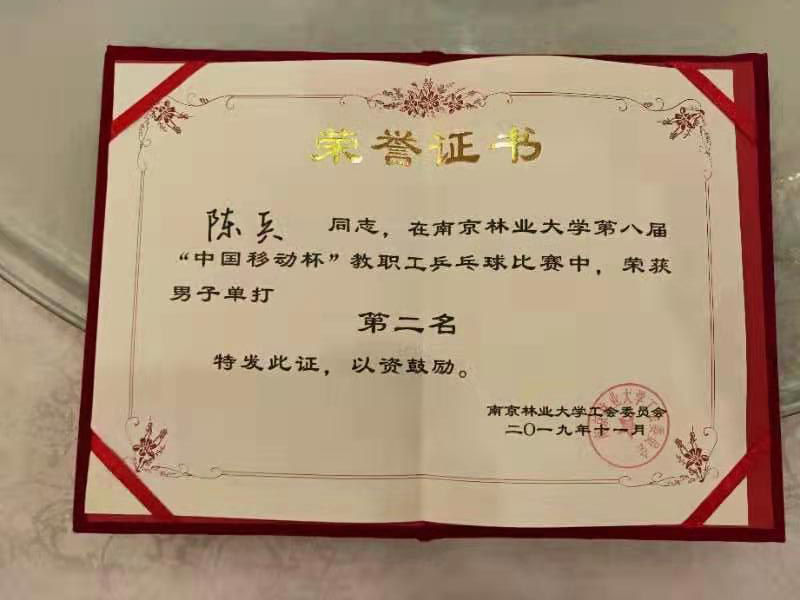 荣誉证书
陈兵 同志，在南京林业大学第八届
“中国移动杯”教职工乒乓球比赛中，荣获
男子单打
第二名
特发此证，以资鼓励。
南京林业大学工会委员会
二〇一九年十一月